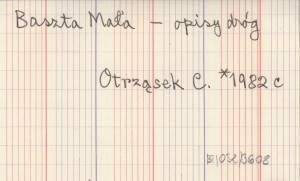 Baszta Mała – opisy dróg
Otrząsek C. *1982 c